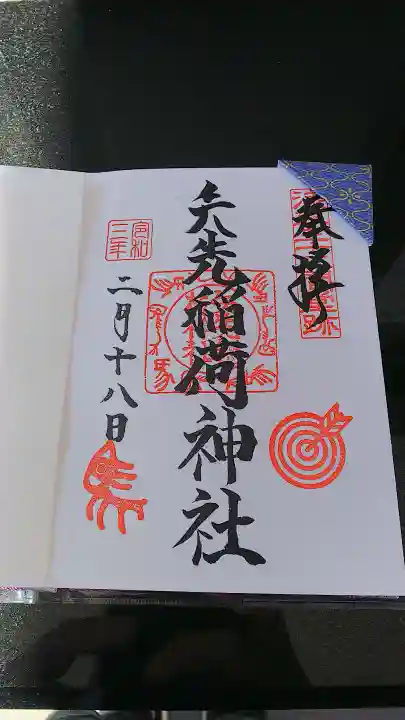 奉拝
矢先稲荷神社
令和
三年
二月十八日